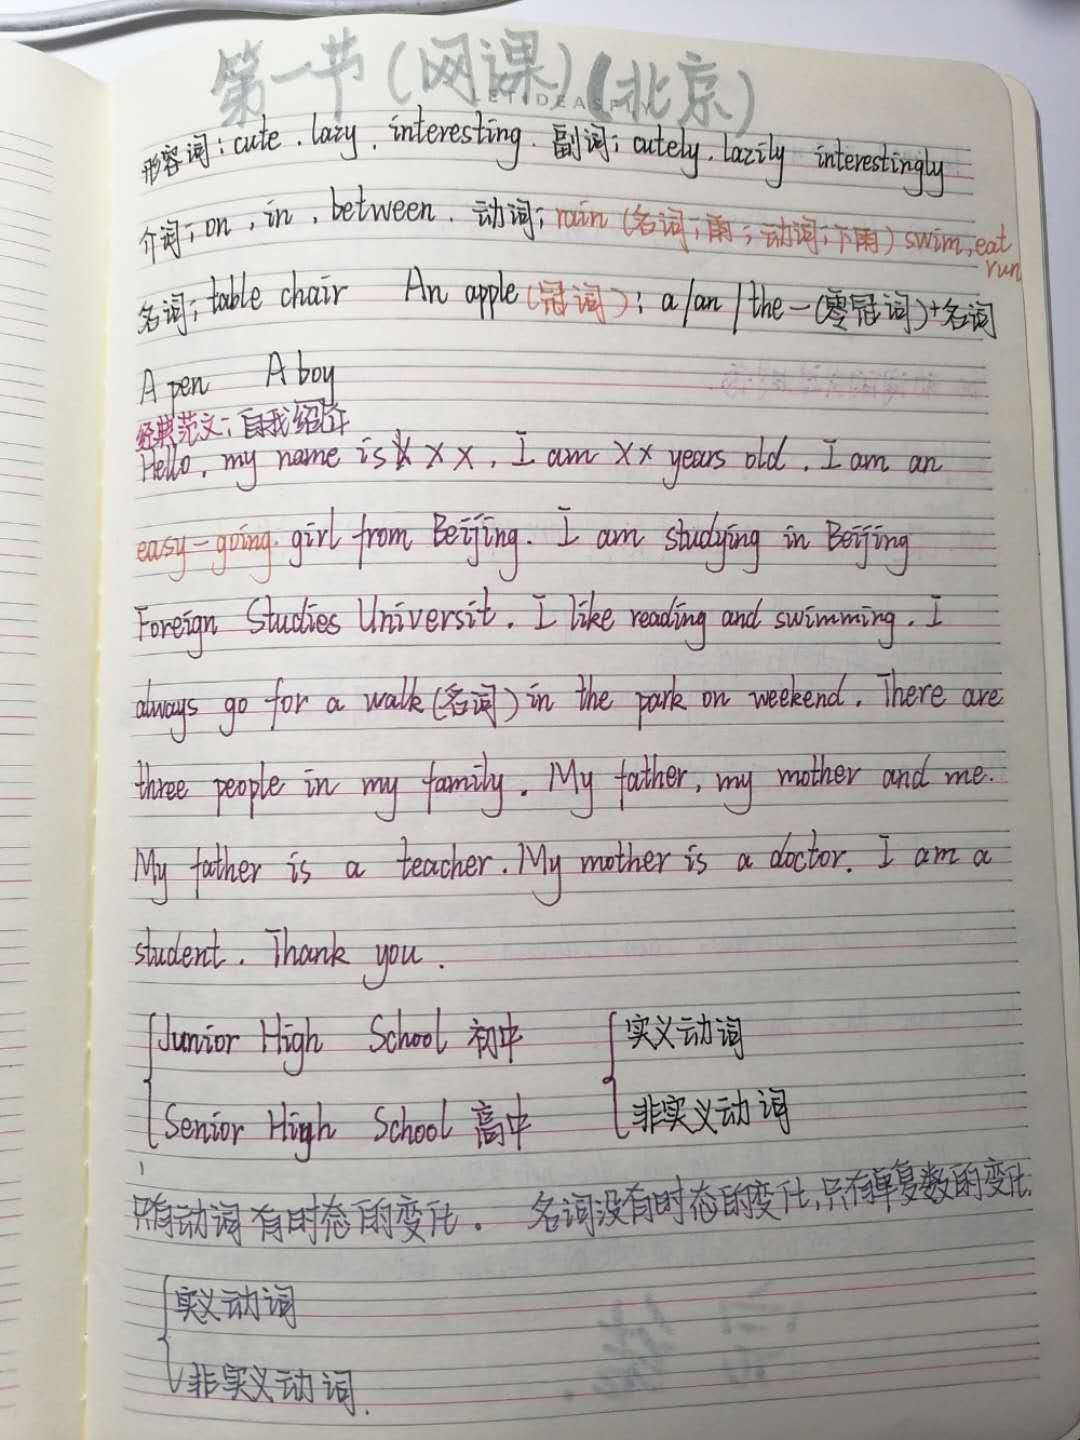 第一节(网课)(北京)
LETIDEASFLY
形容词：cute . lazy . interesting . 副词；cutely . lazily interestingly
介词；on , in , between . 动词；rain (名词；雨；动词；下雨) swim, eat
run
名词；table chair An apple (冠词)；a/an/the-(零冠词)+名词
A pen A boy
经典范文；自我绍介
Hello, my name is X X X . I am XX years old . I am an
easy-going girl from Beijing . I am studying in Beijing
Foreign Studies Universit . I like reading and swimming . I
always go for a walk (名词) in the park on weekend . There are
three people in my family . My father, my mother and me .
My father is a teacher . My mother is a doctor . I am a
student . Thank you .
Junior High School 初中 实义动词
Senior High School 高中 非实义动词
只有动词有时态的变化 . 名词没有时态的变化,只有单复数的变化.
实义动词
非实义动词.